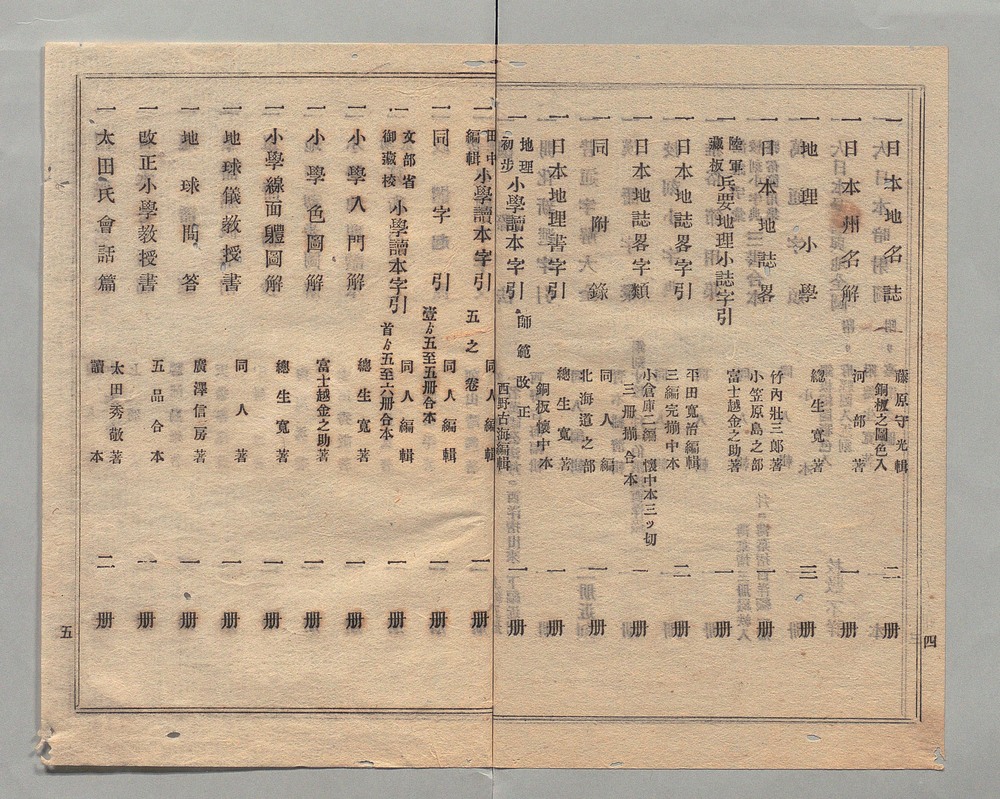 一日本地名誌 藤原守光輯 銅板之圖色入 二册
一日本州名解 河部著 一册
一地理小學 總生寬著 三册
一日本地誌畧 竹內壯三郎著 小笠原島之部 一册
一陸軍藏板兵要地理小誌字引 富士越金之助著 一册
一日本地誌畧字引 平田寬治編輯 三編完揃中本 二册
一日本地誌畧字類 小倉庫二編 懷中本三ッ切 三册揃合本 一册
一同附錄 同人編 北海道之部 一册
一日本地理書字引 總生寬著 銅板懷中本 一册
一地理初步小學讀本字引 師範改正 西野古海編輯 一册
一田中編輯小學讀本字引 五之卷 同人編輯 一册
一同字引 壹ゟ五至五册合本 同人編輯 一册
一文部省御藏棱小學讀本字引 首ゟ五至六册合本 同人編輯 一册
一小學入門解 總生寬著 一册
一小學色圖解 富士越金之助著 一册
一小學線面軆圖解 總生寬著 一册
一地球儀教授書 同人著 一册
一地球問答 廣澤信二房著 一册
一改正小學教授書 五品合本 一册
一太田氏會話篇 太田秀敬著 讀本 二册
四
五